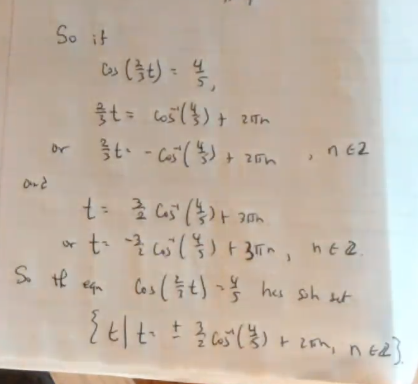 So if
cos(2/3 t) = 4/5,
2/3 t = cos⁻¹(4/5) + 2πn
or 2/3 t = -cos⁻¹(4/5) + 2πn , n ∈ ℤ
and
t = 3/2 cos⁻¹(4/5) + 3πn
or t = -3/2 cos⁻¹(4/5) + 3πn, n ∈ ℤ.
So the eqn cos(2/3 t) = 4/5 has soln set
{t | t = ± 3/2 cos⁻¹(4/5) + 2πn, n ∈ ℤ}.